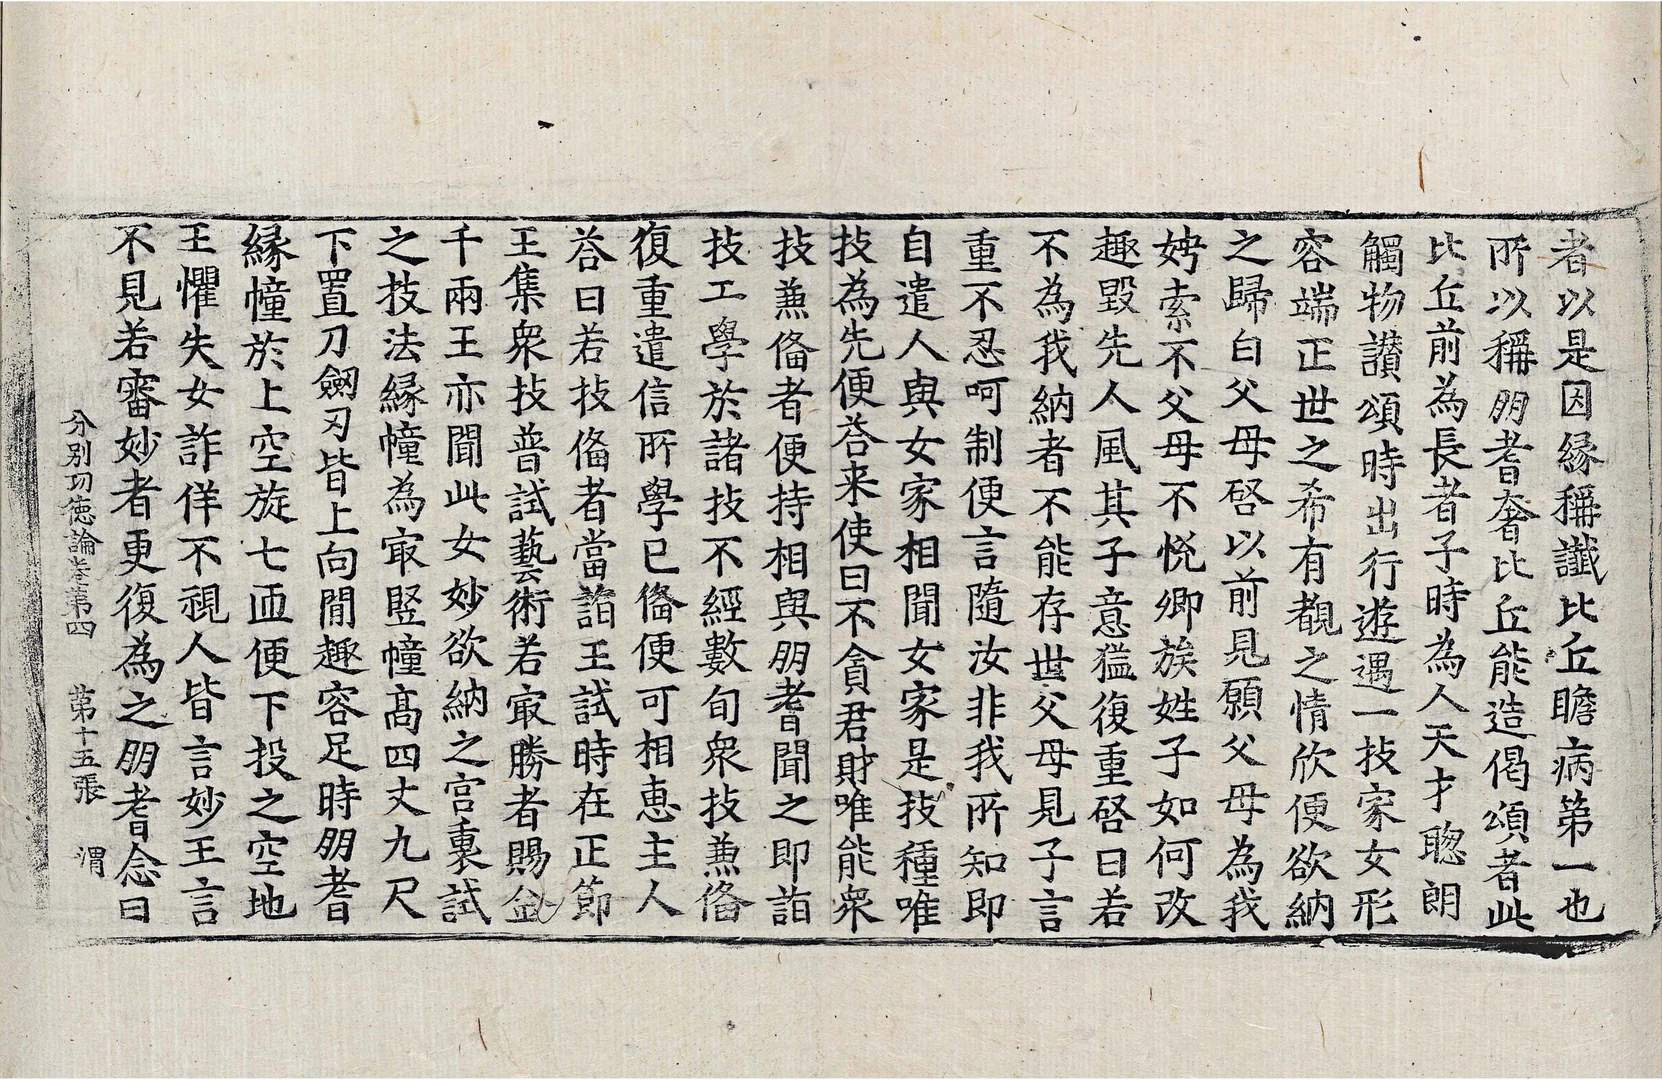 者以是因緣稱讖比丘瞻病第一也
所以稱朋耆奢比丘能造偈頌者此
比丘前為長者子時為人天才聦朗
觸物讃頌時出行遊遇一技家女形
容端正世之希有覩之情欣便欲納
之歸白父母啓以前見願父母為我
娉索不父母不悅卿族姓子如何改
趣毀先人風其子意猛復重啓曰若
不為我納者不能存世父母見子言
重不忍呵制便言隨汝非我所知即
自遣人與女家相聞女家是技種唯
技為先便荅来使曰不貪君財唯能衆
技兼俻者便持相與朋耆聞之即詣
技工學於諸技不經數旬衆技兼俻
復重遣信所學已俻便可相惠主人
荅曰若技俻者當詣王試時在正節
王集衆技普試藝術若㝡勝者賜金
千兩王亦聞此女妙欲納之宮裏試
之技法緣幢為㝡竪幢髙四丈九尺
下置刀劒刃皆上向閒趣容足時朋耆
緣幢於上空旋七迊便下投之空地
王懼失女詐佯不視人皆言妙王言
不見若審妙者更復為之朋耆念曰
分別功德論卷第四 第十五張 渭